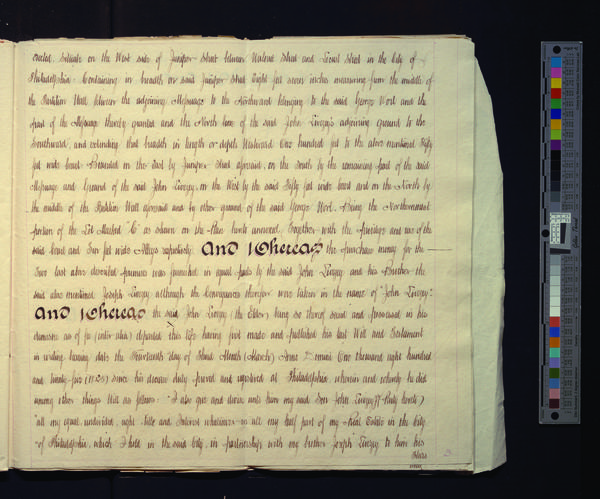 erected. Situate on the West side of Juniper Street between Walnut Street and Locust Street in the City of
Philadelphia. Containing in breadth on said Juniper Street Eight feet seven inches measuring from the middle of
the Partition Wall between the adjoining Messuage to the Northward belonging to the said George Wort and the
of the Messuage thereby granted and the North line of the said John Livezey's adjoining ground to the
Southward, and extending that breadth in length or depth Westward One hundred feet to the above mentioned Fifty
feet wide Court. Bounded on the East by Juniper Street aforesaid, on the South by the remaining part of the said
Messuage and Ground of the said John Livezey, on the West by the said Fifty feet wide Court and on the North by
the middle of the Partition Wall aforesaid and by other ground of the said George Wort. Being the Northernmost
portion of the Lot Marked "C" as shown on the Plan hereto annexed. Together with the privilege and use of the
said Court and Two feet wide Alleys respectively. And Whereas the purchase money for the
Two last above described premises was furnished in equal parts by the said John Livezey and his Brother the
said above mentioned Joseph Livezey although the Conveyances therefor were taken in the name of "John Livezey"
And Whereas the said John Livezey (the Elder) being so thereof seized and possessed in his
demesne as of fee (inter alia) departed this life having first made and published his last Will and Testament
in writing bearing date the Fourteenth day of Third Month (March) Anno Domini One thousand eight hundred
and twenty-five (1825) since his decease duly proved and registered at Philadelphia, wherein and whereby he did
among other things Will as follows: "I also give and devise unto him my said Son John Livezey (Party hereto)
"all my equal, undivided, right, title and Interest whatsoever in all my half part of my Real Estate in the City
"of Philadelphia, which I hold in the said City, in partnership with my brother Joseph Livezey to him his
Heirs
3